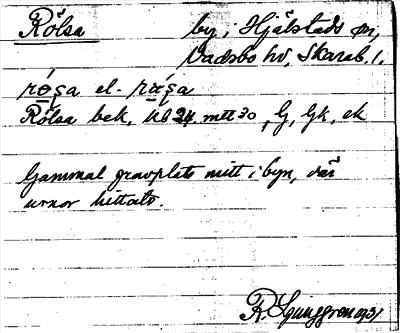 Rölsa by i Hjälstads sn,
Vadsbo hd, Skarab. l.
Rölsa bek, kb 24 mtt 30, G, Gk, ek
Gammal gravplats mitt i byn, där
urnor hittats.
R. Ljunggren 1931